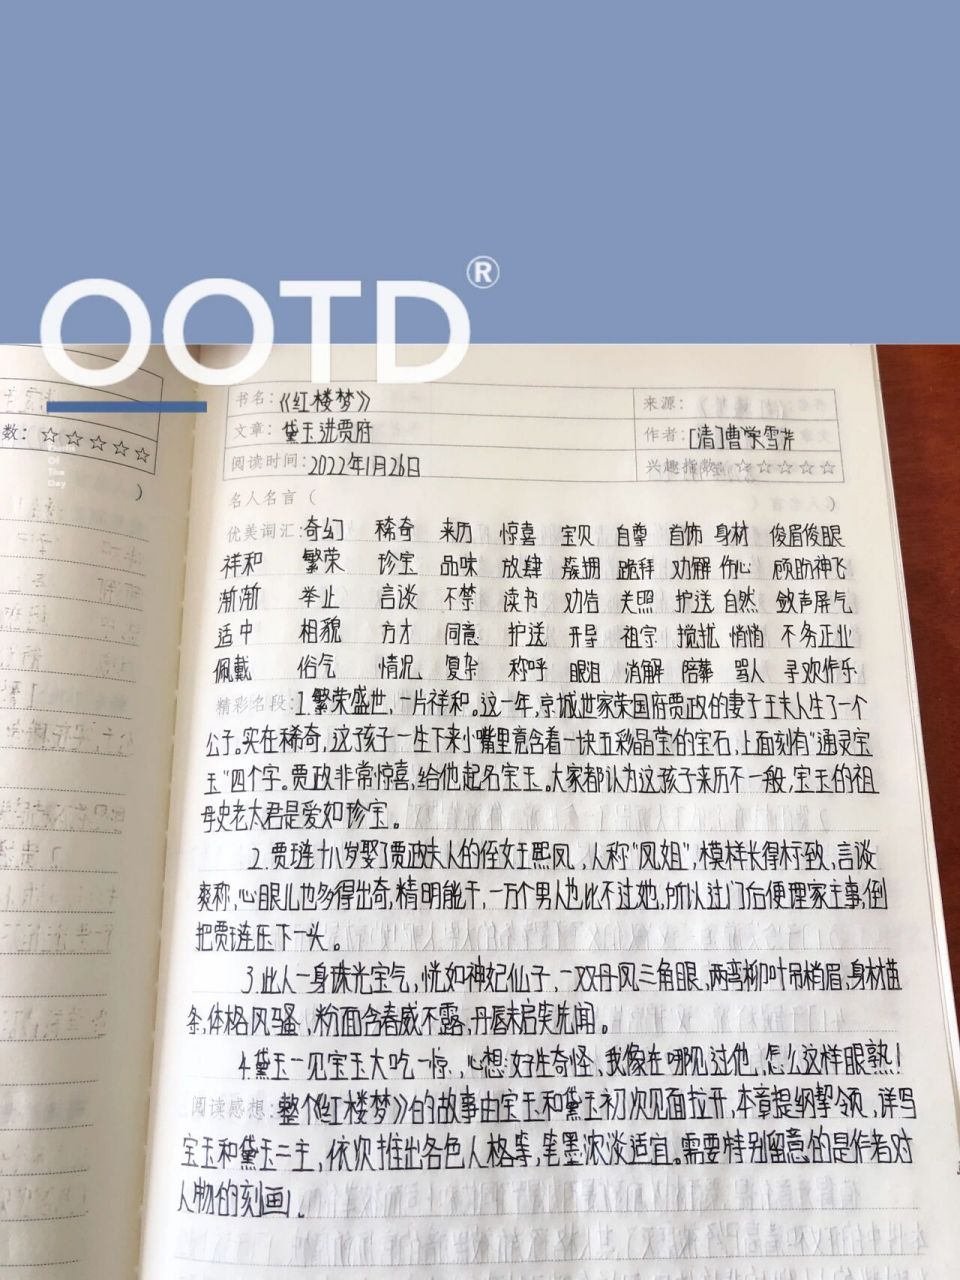 OOTD®
Of
The
Day
数：☆☆☆☆☆
）
书名：《红楼梦》
来源：
文章：黛玉进贾府
作者：[清]曹学雪芹
阅读时间：2022年1月26日
兴趣指数：☆☆☆☆☆
名人名言（
）
优美词汇：奇幻 稀奇 来历 惊喜 宝贝 自尊 首饰 身材 俊眉俊眼
祥和 繁荣 珍宝 品味 放肆 簇拥 跪拜 劝解 伤心 顾盼神飞
渐渐 举止 言谈 不禁 读书 劝告 关照 护送 自然 敛声屏气
适中 相貌 方才 同意 护送 开导 祖宗 搅扰 悄悄 不务正业
佩戴 俗气 情况 复杂 称呼 眼泪 消解 陪葬 骂人 寻欢作乐
精彩名段：1.繁荣盛世，一片祥和。这一年，京城世家荣国府贾政的妻子王夫人生了一个
公子。实在稀奇，这孩子一生下来小嘴里竟含着一块五彩晶莹的宝石，上面刻有“通灵宝
玉”四个字。贾政非常惊喜，给他起名宝玉。大家都认为这孩子来历不一般，宝玉的祖
母史老太君是爱如珍宝。
2.贾琏十八岁娶了贾政夫人的侄女王熙凤，人称“凤姐”，模样长得标致，言谈
爽称，心眼儿也多得出奇，精明能干，一万个男人也比不过她，所以过门后便理家主事，倒
把贾琏压下一头。
3.此人一身珠光宝气，恍如神妃仙子，一双丹凤三角眼，两弯柳叶吊梢眉，身材苗
条，体格风骚，粉面含春威不露，丹唇未启笑先闻。
4.黛玉一见宝玉大吃一惊，心想：好生奇怪，我像在哪见过他，怎么这样眼熟！
阅读感想：整个《红楼梦》的故事由宝玉和黛玉初次见面拉开，本章提纲挈领，详写
宝玉和黛玉二主，依次推出各色人格等，笔墨浓淡适宜。需要特别留意的是作者对
人物的刻画！